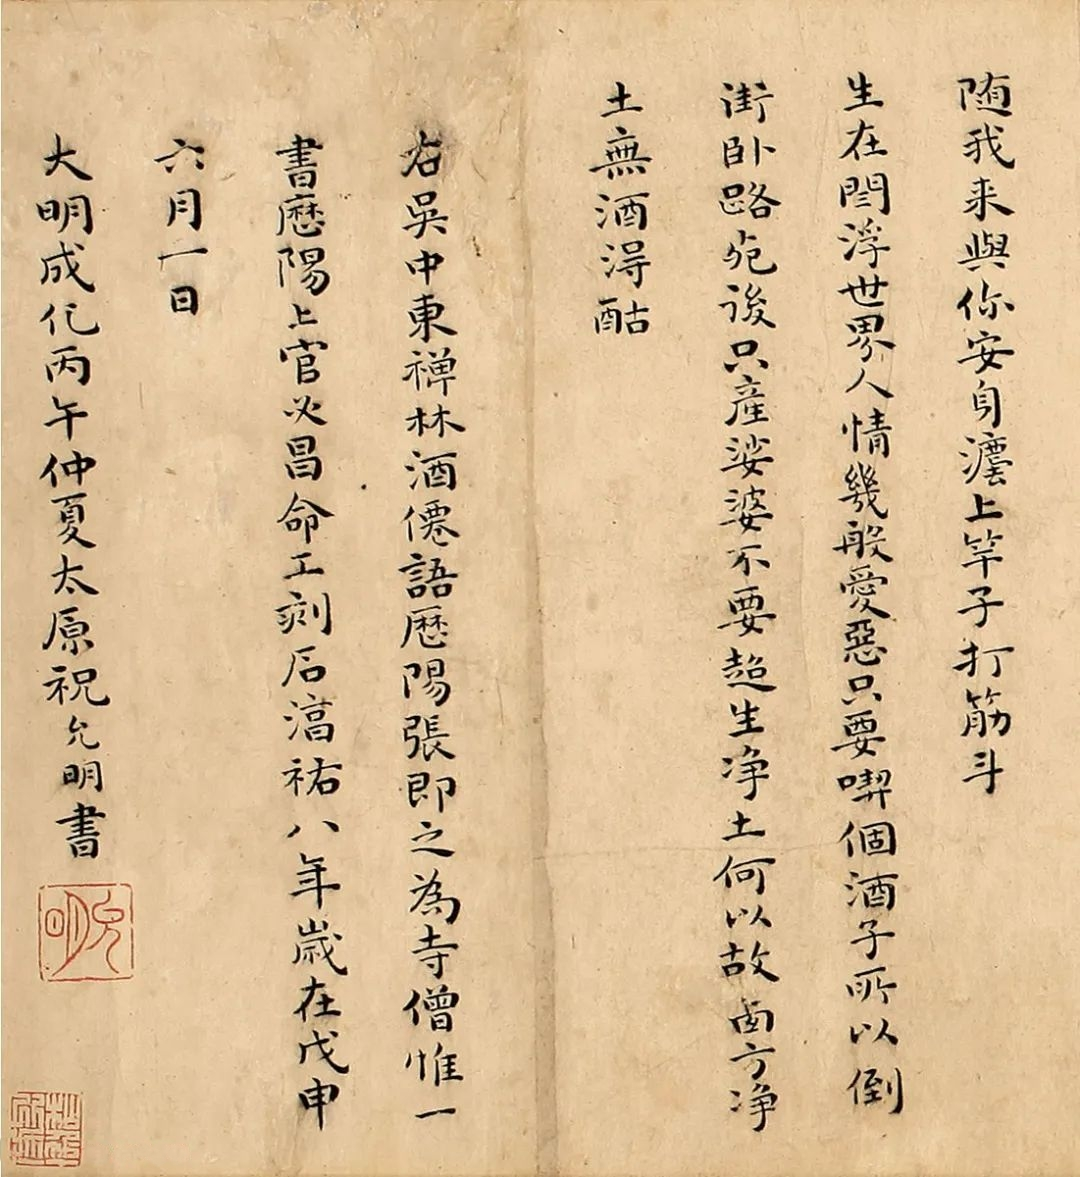 随我来與你安自㶓上竿子打筋斗
生在閻浮世界人情幾般愛惡只要喫個酒子所以倒
街卧路死後只産娑婆不要超生净土何以故西方净
土無酒得酤
右吳中東禅林酒僊語歷陽張即之為寺僧惟一
書歷陽上官必昌命工刻石淳祐八年歲在戊申
六月一日
大明成化丙午仲夏太原祝允明書
允明